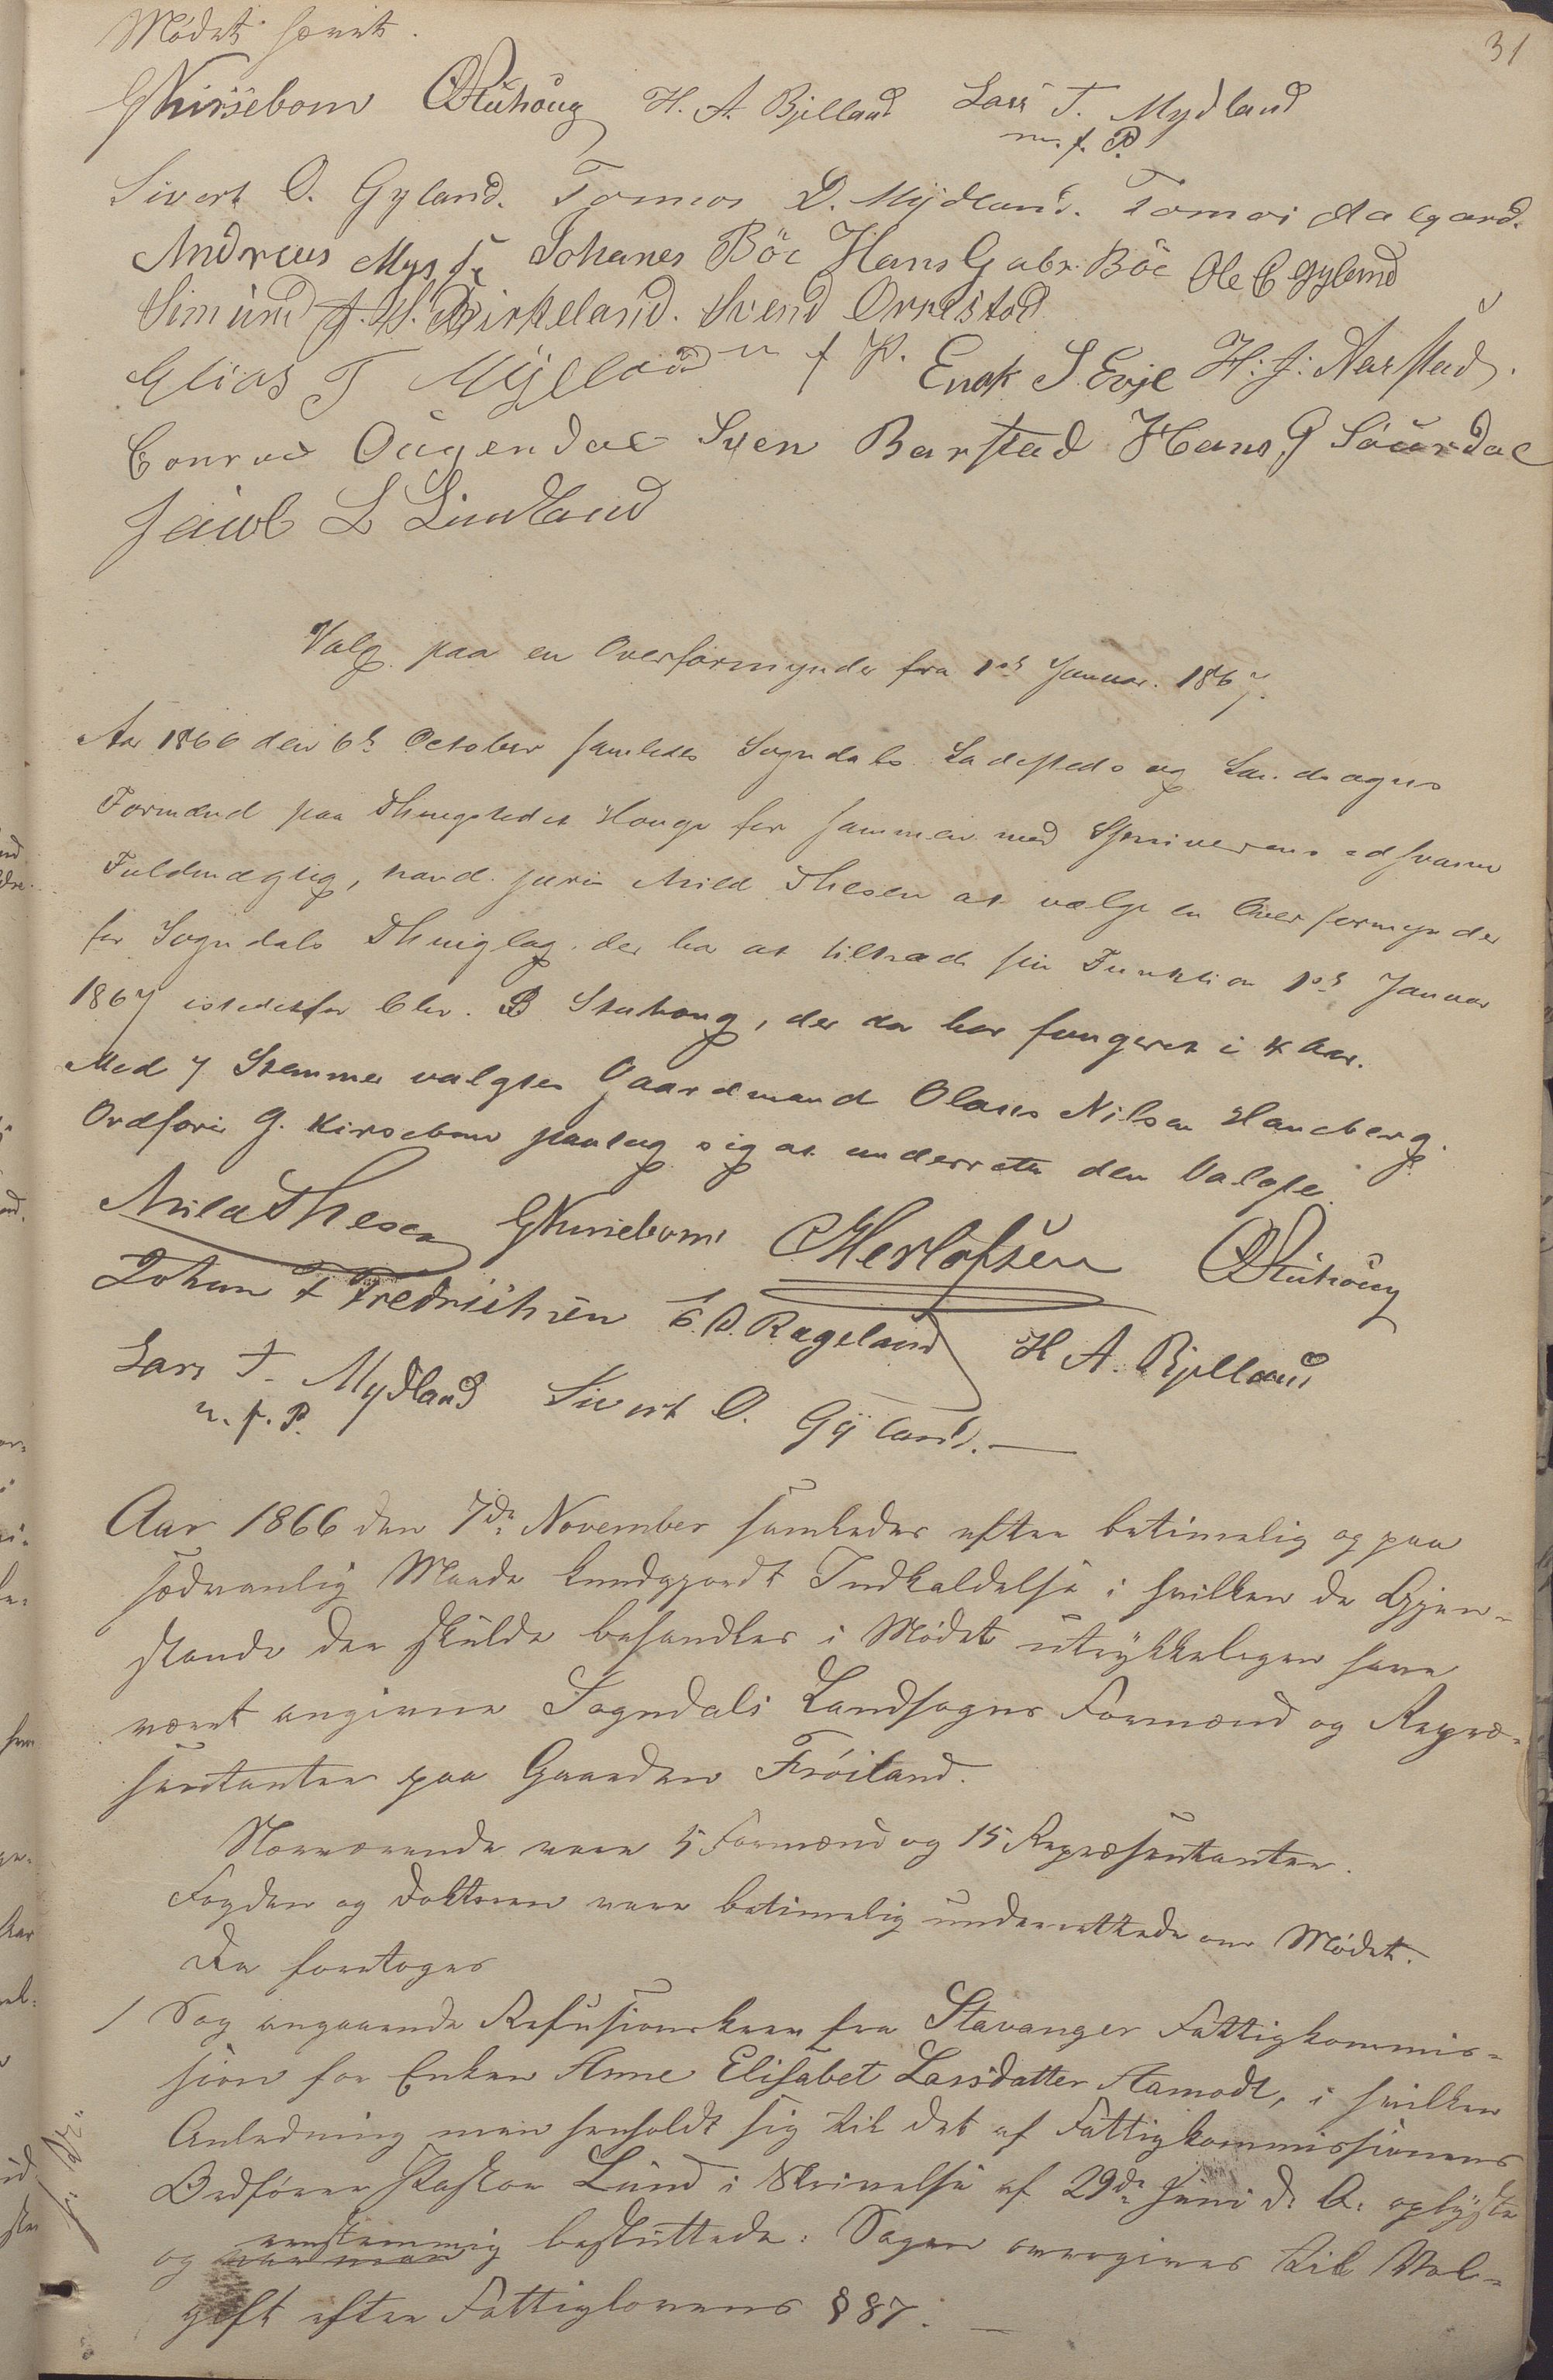 31
Mødet hævet.
GKirsebom OStuhoug H. A. Bjelland Lars T. Mydland
m. f. P.
Sivert O. Gyland. Tomas D. Mydland. Tomas Aalgaard.
Andreas Myssa Johanes Böe Hans Gabr. Böe Ole C Gyland
Simund J. S. Birkeland. Svend Orrestad
Elias T Mydland m f P. Enok S. Evje H. J. Aarstad.
Conrad Ougendal Sven Barstad Hans G Sourdal
Jacob L Lindland
Valg paa en Overformynder fra 1st Januar 1867.
Aar 1866 den 6te October samledes Sogndals Ladesteds og Landsogns
Formænd paa Thingstedet Houge for sammen med Skriverens edsvorne
Fuldmægtig, cand. juris Mild Thesen at vælge en Overformynder
for Sogndals Thinglag, der har at tiltræde sin Funktion 1st Januar
1867 istedetfor Chr. B Stuhoug, der da har fungeret i 4 Aar.
Med 7 Stemmer valgtes Gaardmand Olaus Nilsen Haneberg.
Ordfører G. Kirsebom paatog sig at underrette den Valgte.
Mild Thesen GKirsebom OHerlofsen OStuhoug
Johan F Fredriksen E. D. Rægeland H A. Bjelland
Lars T. Mydland Sivert O. Gyland.
m. f. P.
Aar 1866 den 7de November samledes efter betimelig og paa
sædvanlig Maade kundgjordt Indkaldelse i hvilken de Gjen-
stande der skulde behandles i Mødet udtrykkeligen have
været angivne Sogndals Landsogns Formænd og Repræ-
sentanter paa Gaarden Frøiland.
Nærværende vare 5 Formænd og 15 Repræsentanter.
Fogden og Doktoren vare betimelig underrettede om Mødet.
Da foretoges
1 Sag angaaende Refusionskrav fra Stavanger Fattigkommis-
sion for Enken Anne Elisabet Larsdatter Aamodt, i hvilken
Anledning man henholdt sig til det af Fattigkommissionens
Ordfører Pastor Lund i Skrivelse af 29de Juni d. A. oplyste
og eenstemmig besluttede: Sagen overgives til Vold-
gift efter Fattiglovens § 87.